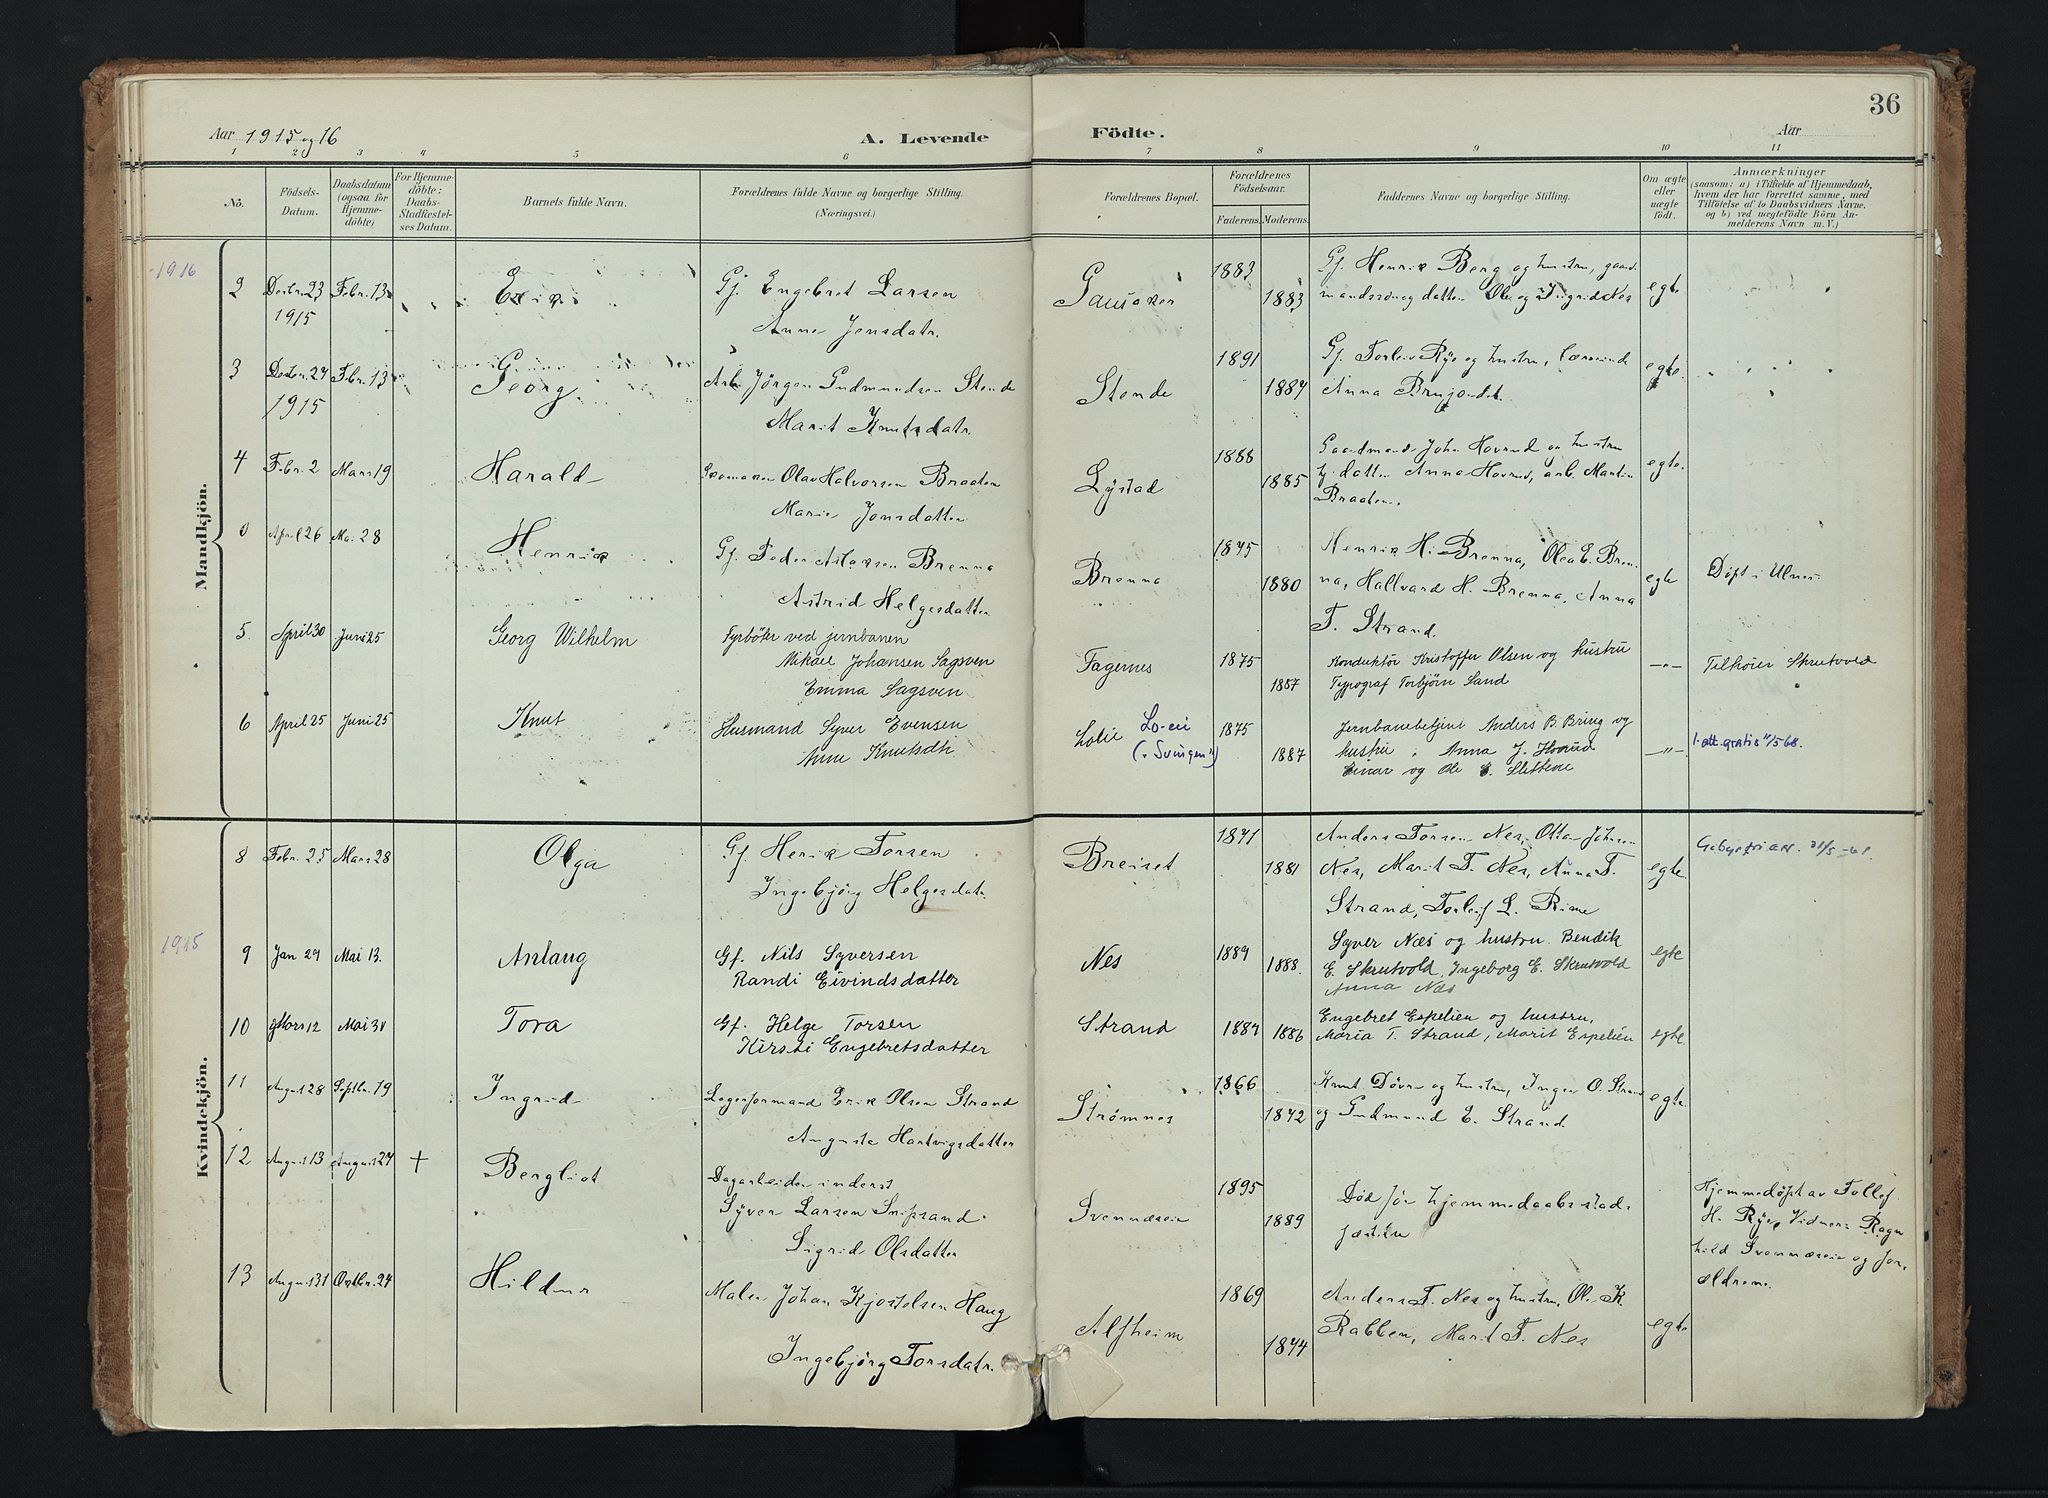 36
Aar 1915 og 16
A. Levende Födte.
Aar
1 2 3 4 5 6 7 8 9 10 11
No.
Födsels-Datum.
Daabsdatum (ogsaa for Hjemme-döbte)
For Hjemme-döbte: Daabs-Stadfæstel-ses Datum.
Barnets fulde Navn.
Forældrenes fulde Navne og borgerlige Stilling. (Næringsvei.)
Forældrenes Bopæl.
Forældrenes Födselsaar.
Faderens. Moderens.
Faddernes Navne og borgerlige Stilling.
Om ægte eller uægte födt.
Anmærkninger (saasom: a) i Tilfælde af Hjemmedaab, hvem der har forrettet samme, med Tilföielse af to Daabsvidners Navne, og b) ved uægtefödte Börn An-melderens Navn m. V.)
Mandkjön.
1916
2 Desbr. 23 1915 Febr. 13 Erik Gj. Engebret Larsen
Anne Jensdatr.
1883 1883 Gj. Henrik Berg og hustru, gaard-
mandssøn og datter Ole og Ingrid Nes egte
3 Desbr. 24 1915 Febr. 13 Georg Arb. Jörgen Gudmundsen Stende
Marit Knutsdatr.
Stende 1891 1884 Gj. Torleiv Rye og hustru,
Anna egte.
4 Febr. 2 Mars 19 Harald Skomaker Olav Halvorsen Braaten
Marie Jonsdatter
Lystad 1888 1885 Gaardmand John Hovrud og hustru
datter Anna Hovrud, arb. Martin
Braaten. egte.
0 April 26 Mai 28 Henrik Gj. Peder Aslaksen Brenna
Astrid Helgesdatter
Brenna 1875 1880 Henrik H. Brenna, Olea E. Bren-
na, Hallvard H. Brenna, Anna
T. Strand. egte Döpt i Ulnes
5. April 30 Juni 25 Georg Wilhelm Fyrböter ved jernbanen
Mikael Johansen Sagsven
Emma Sagsven
Fagernes 1875 1887 Konduktör Kristoffer Olsen og hustru
Typograf Torbjörn Sand -"- Tilhörer Skrutvold
6 April 25 Juni 25 Knut Husmand Syver Evensen
Anne Knutsdtr.
Loeie Lo-eie
("Svingen") 1875 1887 Jernbanebetjent Anders B. Bring og
hustru, Anna J. Hovrud
Einar og Ole E. Slettene -"- 1. att. gratis 11/5 68.
Kvindekjön.
8 Febr. 25 Mars 28 Olga Gj. Henrik Torsen
Ingebjörg Helgesdatr.
Breiset 1871 1881 Anders Torsen Nes, Otto Johnsen
Nes, Marit T. Nes, Anna T.
Strand, Torleif L. Rime egte 31/5 -61.
1915
9 Jan 24 Mai 13. Anlaug Gf. Nils Syversen
Randi Eivindsdatter
Nes 1884 1888. Syver Næs og hustru. Bendik
E. Skrutvold, Ingeborg E. Skrutvold
Anna Næs egte
10 Mars 12 Mai 30 Tora Gf. Helge Torsen
Kirsti Engebretsdatter
Strand 1884 1886 Engebret Espelien og hustru,
Maria T. Strand, Marit Espelien egte.
11 August 28 Septbr. 19 Ingrid Lagerformand Erik Olsen Strand
Auguste Hartvigsdatter
Strømnes 1866 1872 Knut Døvre og hustru, Inger O. Strand
og Gudmund E. Strand egte.
12 August 13 August 24 + Bergliot Dagarbeider inderst
Syver Larsen Snipsand.
Sigrid Olsdatter
Svennæseie 1895 1889 Död för hjemmedaabsstad-
fæstelse
Hjemmedöpt av Tollef
H. Rye. Vidner: Ragn-
hild Svennæseie og for-
ældrene.
13 August 31 Oktbr. 24 Hildur Maler Johan Kjøstelsen Haug
Ingebjörg Torsdatr.
Alfheim 1869 1874 Anders T. Nes og hustru, Ole K.
Rabben, Marit T. Nes egte